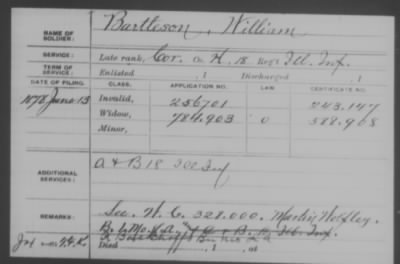 NAME OF SOLDIER: Bartleson, William
SERVICE: Late rank, Cor. Co. H, 18 Reg't Ill. Inf.
TERM OF SERVICE: Enlisted , 1 Discharged , 1
DATE OF FILING. CLASS. APPLICATION NO. LAW CERTIFICATE NO.
1878 June 13 Invalid, 256701 243.147
Widow, 784.903 0 588.908
Minor,
ADDITIONAL SERVICES: A & B 18 Ill Inf
REMARKS: See W. C. 328.000.
B. Ill. Inf.
Died , 1 , at